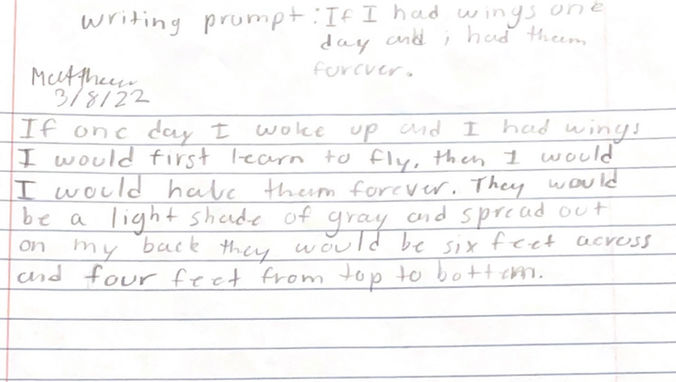 writing prompt: If I had wings one
day and i had them
forever.
Matthew
3/8/22
If one day I woke up and I had wings
I would first learn to fly, then I would
I would have them forever. They would
be a light shade of gray and spread out
on my back they would be six feet across
and four feet from top to bottom.